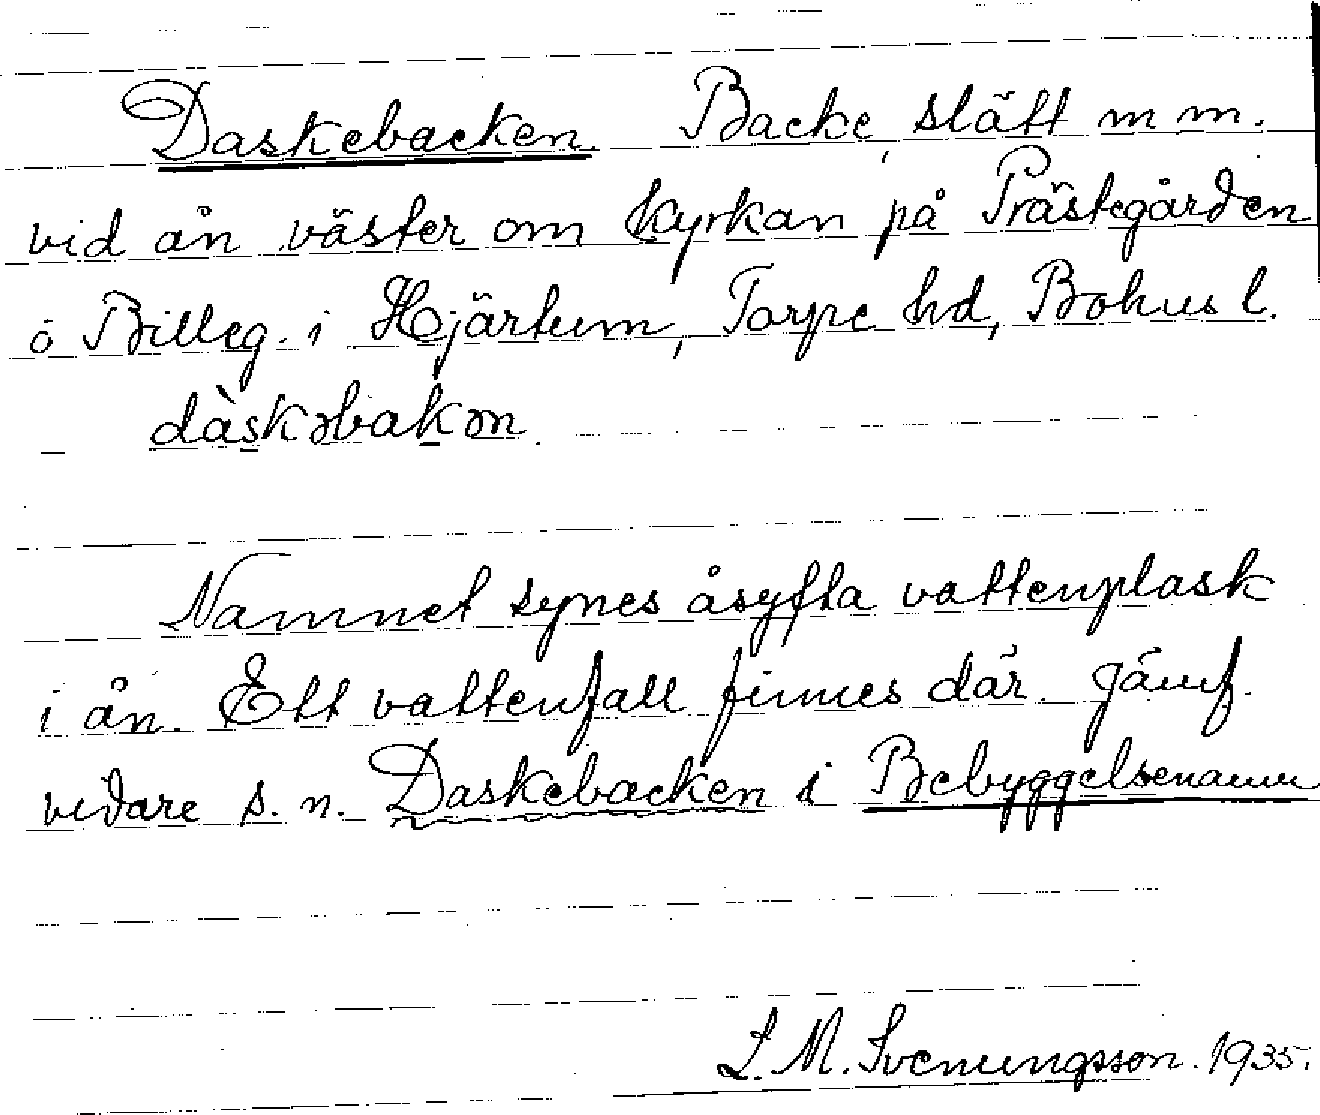 Daskebacken. Backe, slätt m m.
vid ån väster om kyrkan på Prästegården
ö Billeg. i Hjärtum, Torpe hd, Bohus l.
dàskəbakən.
Namnet synes åsyfta vattenplask
i ån. Ett vattenfall finnes där. Jämf.
vidare s. n. Daskebacken i Bebyggelsenamn
L. M. Svenungsson. 1935.